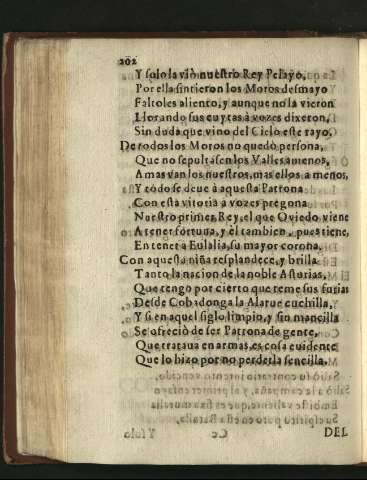 202
Y solo la viò nuestro Rey Pelayo,
Por ella sintieron los Moros desmayo
Faltoles aliento, y aunque no la vieron
Llorando sus cuytas à vozes dixeron,
Sin duda que vino del Cielo este rayo,
De todos los Moros no quedò persona,
Que no sepultasen los Valles amenos,
A mas van los nuestros, mas ellos a menos,
Y tódo se deve à aquesta Patrona
Con esta vitoria à vozes pregona
Nuestro primer Rey, el que Oviedo viene
A tener fortuna, y èl tambien, pues tiene,
En tener a Eulalia, su mayor corona,
Con aquesta niña resplandece, y brilla
Tanto la nacion de la noble Asturias,
Que tengo por cierto que teme sus furias
Desde Cobadonga la Alarue cuchilla,
Y si en aquel siglo limpio, y sin mancilla
Se ofreciò de ser Patrona de gente,
Que tratava en armas, es cosa euidente
Que lo hizo por no perderla sencilla.
DEL